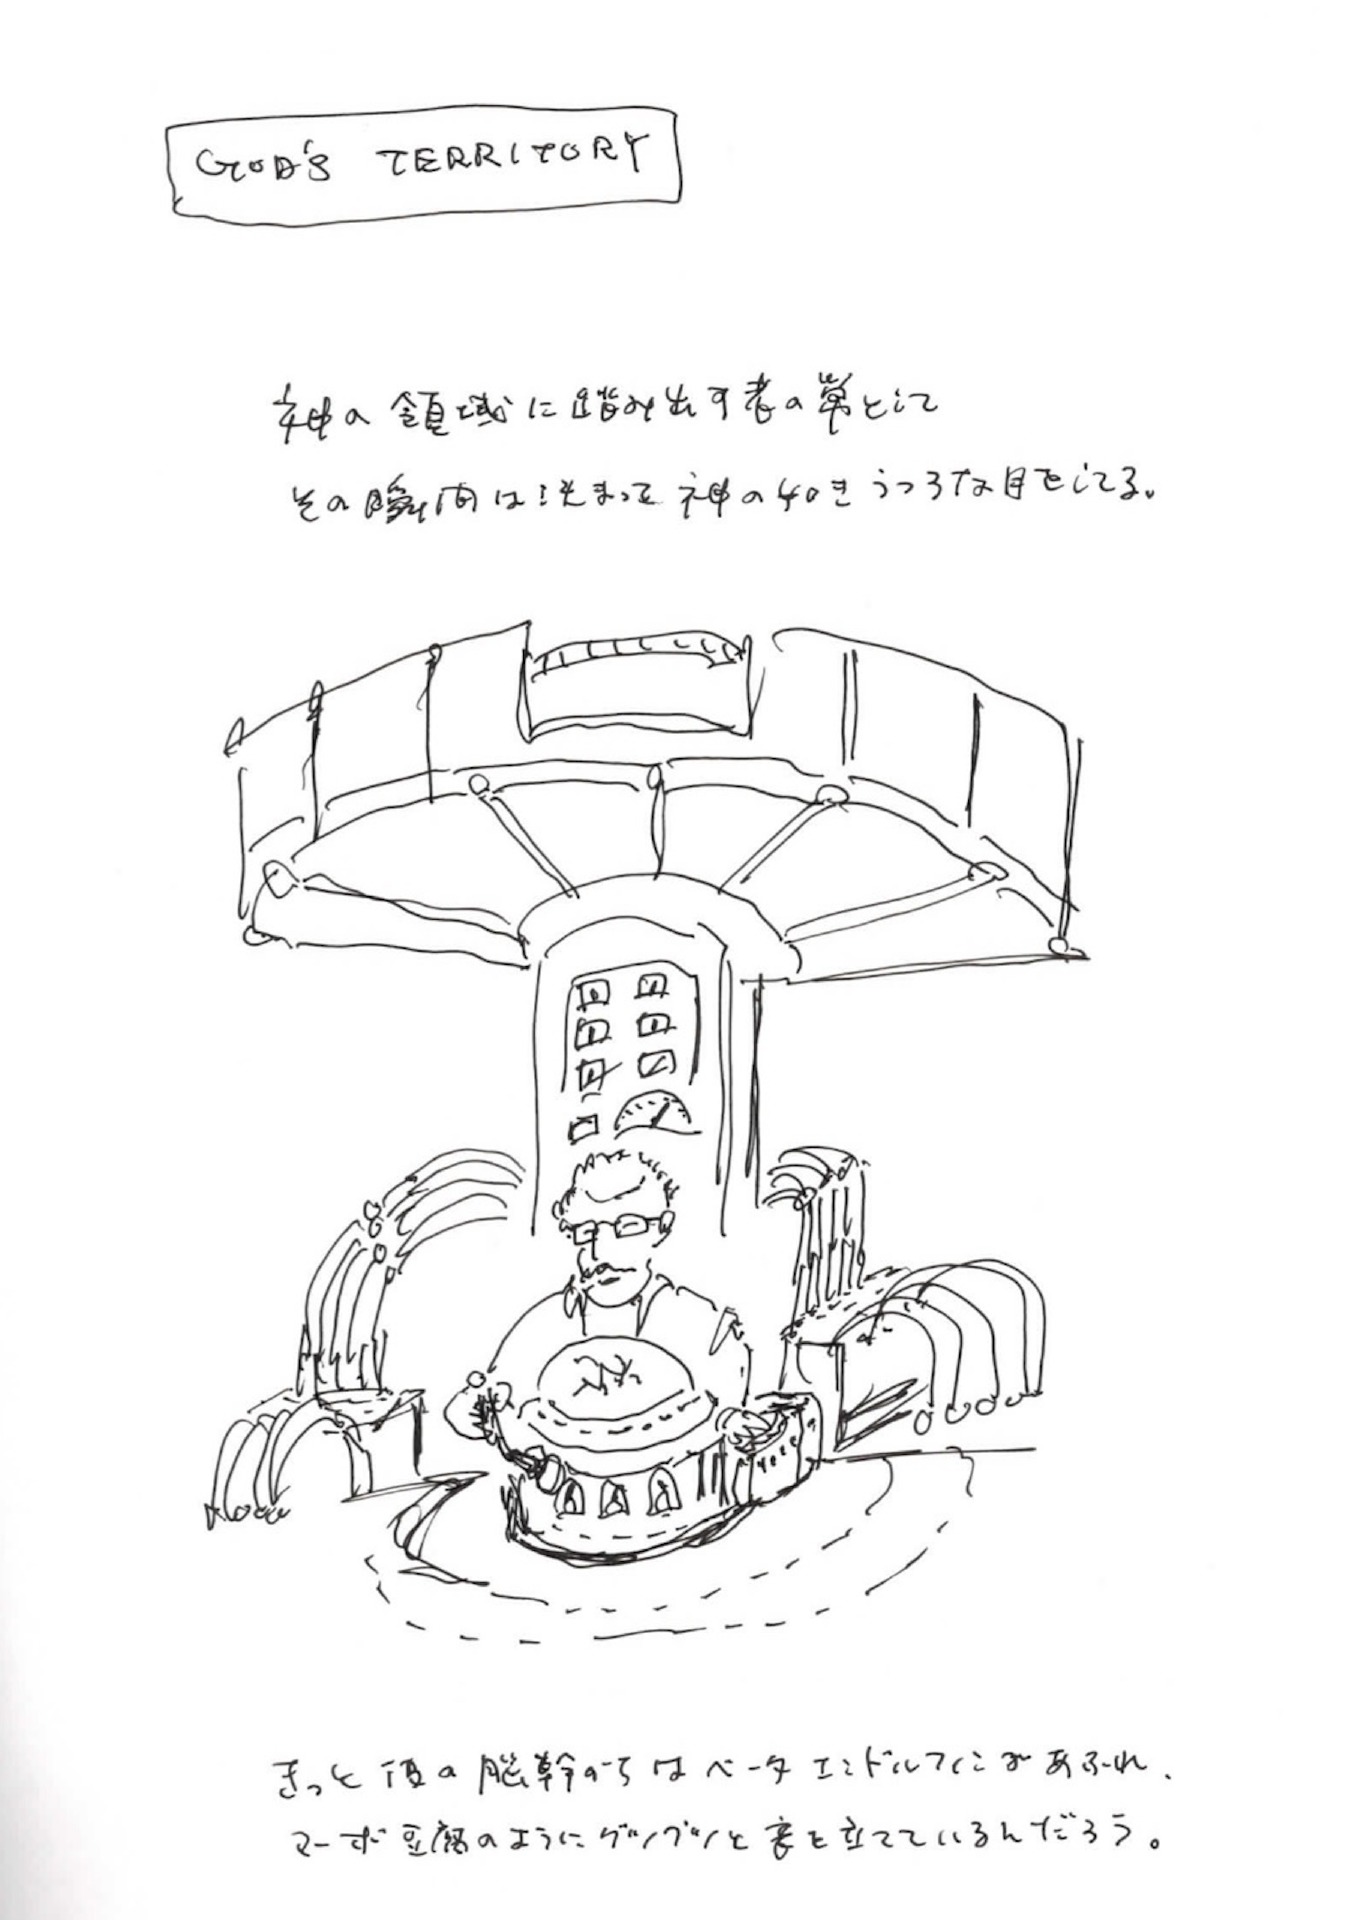 GOD'S TERRITORY
神の領域に踏み出す者の常として
その瞬間は決まって神の如きうつろな目をしてる。
きっと僕の脳幹からはベータエンドルフィンがあふれ、
マーボ豆腐のようにグツグツと音を立てているんだろう。